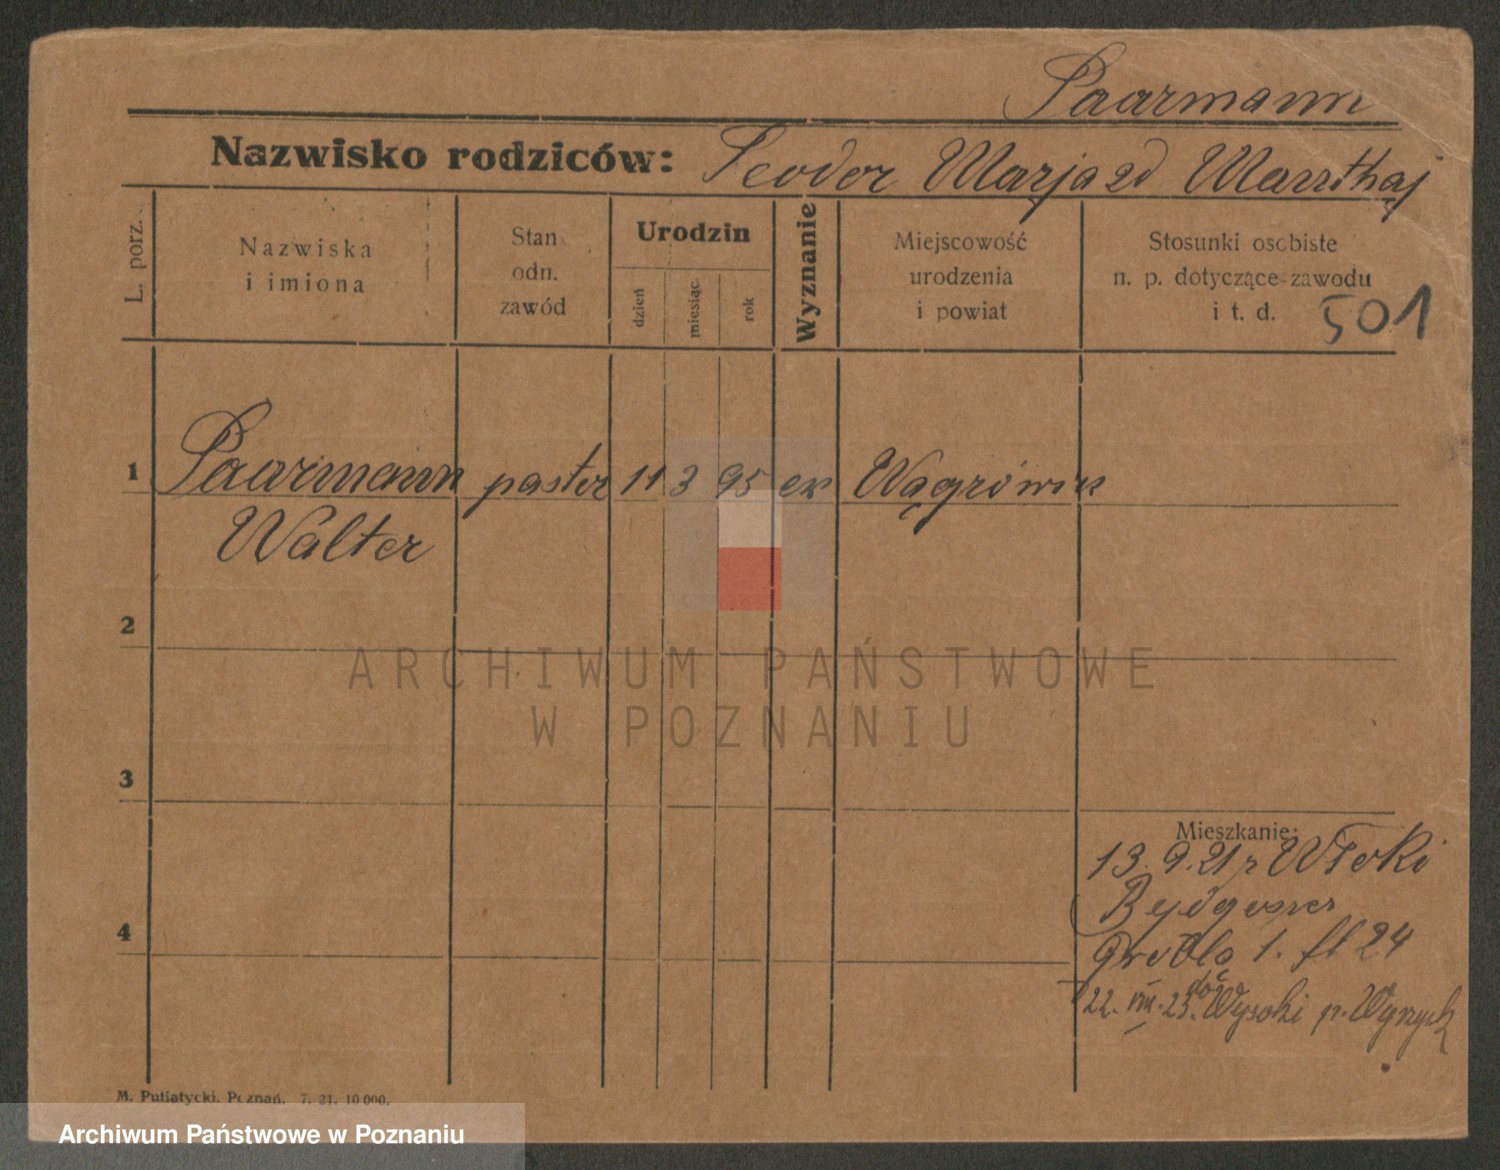 Paarmann
Nazwisko rodziców: Teodor Marja zd
L. porz.
Nazwiska
i imiona
Stan
odn.
zawód
Urodzin
dzień
miesiąc
rok
Wyznanie
Miejscowość
urodzenia
i powiat
Stosunki osobiste
n. p. dotyczące zawodu
i t. d. 501
1 Paarmann pastor 11 3 95 ew Wągrówiec
Walter
2
ARCHIWUM PAŃSTWOWE
W POZNANIU
3
Mieszkanie:
13. 9. 21 r Wtelki
Bydgoszcz
4
Grobla 1. 24
22. VIII. 23. do Wysoki p. Wyrzysk
M. Putiatycki. Poznań. 7. 21. 10 000.
Archiwum Państwowe w Poznaniu